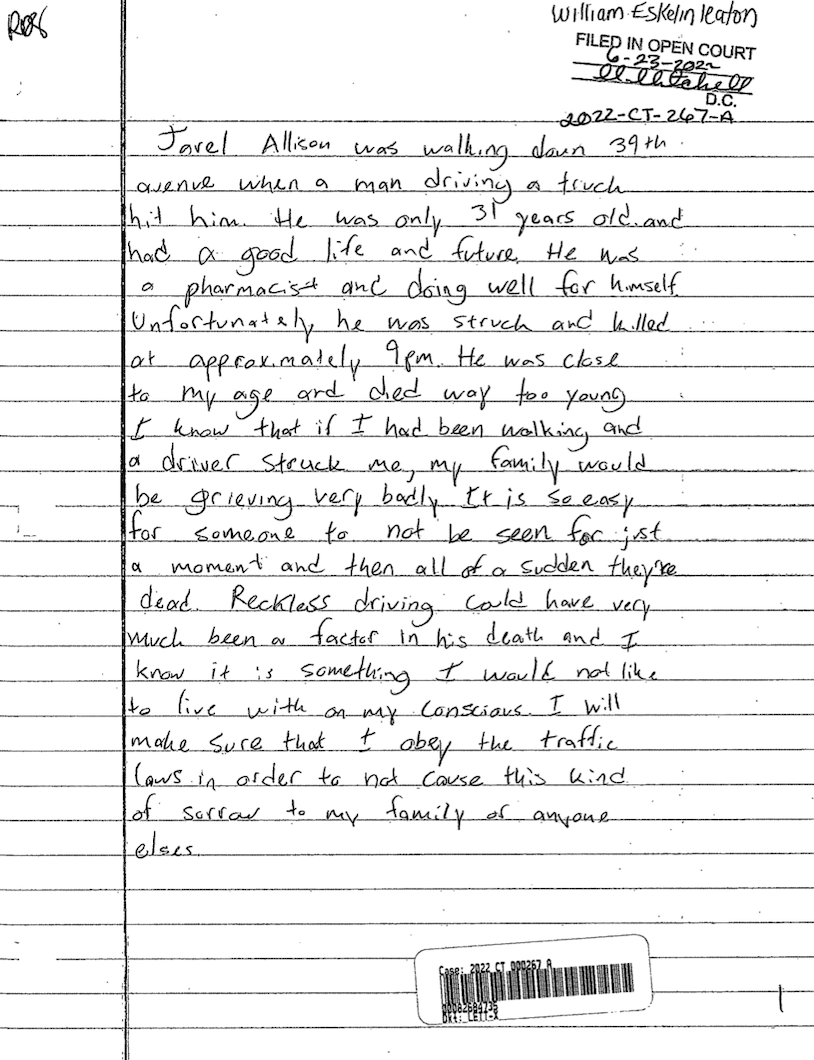 William Eskelin Keaton
FILED IN OPEN COURT
6-23-2022
D.C.
2022-CT-267-A
Jarel Allison was walking down 39th
avenue when a man driving a truck
hit him. He was only 31 years old and
had a good life and future. He was
a pharmacist and doing well for himself.
Unfortunately he was struck and killed
at approximately 9pm. He was close
to my age and died way too young
I know that if I had been walking and
a driver struck me, my family would
be grieving very badly It is so easy
for someone to not be seen for just
a moment and then all of a sudden they're
dead. Reckless driving could have very
much been a factor in his death and I
know it is something I would not like
to live with on my conscious. I will
make sure that I obey the traffic
laws in order to not cause this kind
of sorrow to my family or anyone
elses.
Case: 2022 CT 000267 A
Dkt: LETT-A
1